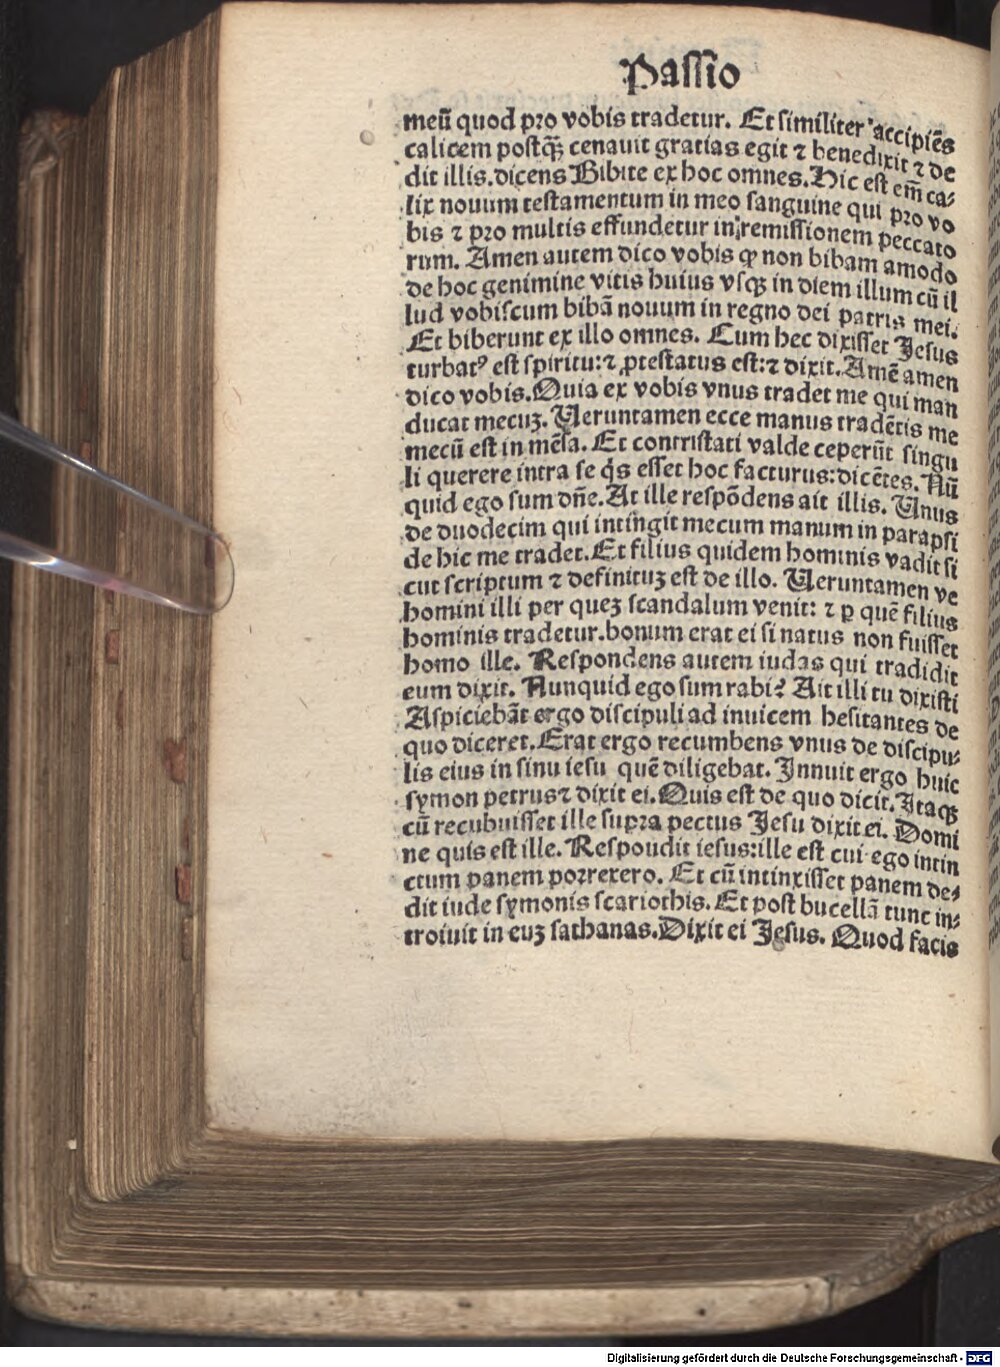 Passio
meū quod pro vobis tradetur. Et similiter accipiēs
calicem postq̄ȝ cenauit gratias egit ⁊ benedixit ⁊ de
dit illis.dicens Bibite ex hoc omnes.Hic est em̄ ca-
lix nouum testamentum in meo sanguine qui pro vo
bis ⁊ pro multis effundetur in remissionem peccato
rum. Amen autem dico vobis ꝙ non bibam amodo
de hoc genimine vitis huius vsqȝ in diem illum cū il
lud vobiscum bibā nouum in regno dei patris mei.
Et biberunt ex illo omnes. Cum hec dixisset Jesus
turbatꝰ est spiritu:⁊ ꝓtestatus est:⁊ dixit.Amē amen
dico vobis.Quia ex vobis vnus tradet me qui man
ducat mecuȝ. Ueruntamen ecce manus tradētis me
mecū est in mēsa. Et contristati valde ceperūt singu
li querere intra se q̇s esset hoc facturus:dicētes. Nū
quid ego sum dn̄e.At ille respōdens ait illis. Unus
de duodecim qui intingit mecum manum in parapsi
de hic me tradet.Et filius quidem hominis vadit si
cut scriptum ⁊ definituȝ est de illo. Ueruntamen ve
homini illi per queȝ scandalum venit: ⁊ ꝑ quē filius
hominis tradetur.bonum erat ei si natus non fuisset
homo ille. Respondens autem iudas qui tradidit
eum dixit. Nunquid ego sum rabi? Ait illi tu dixisti
Aspiciebāt ergo discipuli ad inuicem hesitantes de
quo diceret.Erat ergo recumbens vnus de discipu-
lis eius in sinu iesu quē diligebat. Innuit ergo huic
symon petrus⁊ dixit ei.Quis est de quo dicit.Itaqȝ
cū recubuisset ille supra pectus Jesu dixit ei. Domi
ne quis est ille. Respoudit iesus:ille est cui ego intin
ctum panem porrexero. Et cū intinxisset panem de-
dit iude symonis scariothis. Et post bucellā tunc in-
troiuit in euȝ sathanas.Dixit ei Jesus. Quod facis
Digitalisierung gefördert durch die Deutsche Forschungsgemeinschaft - DFG